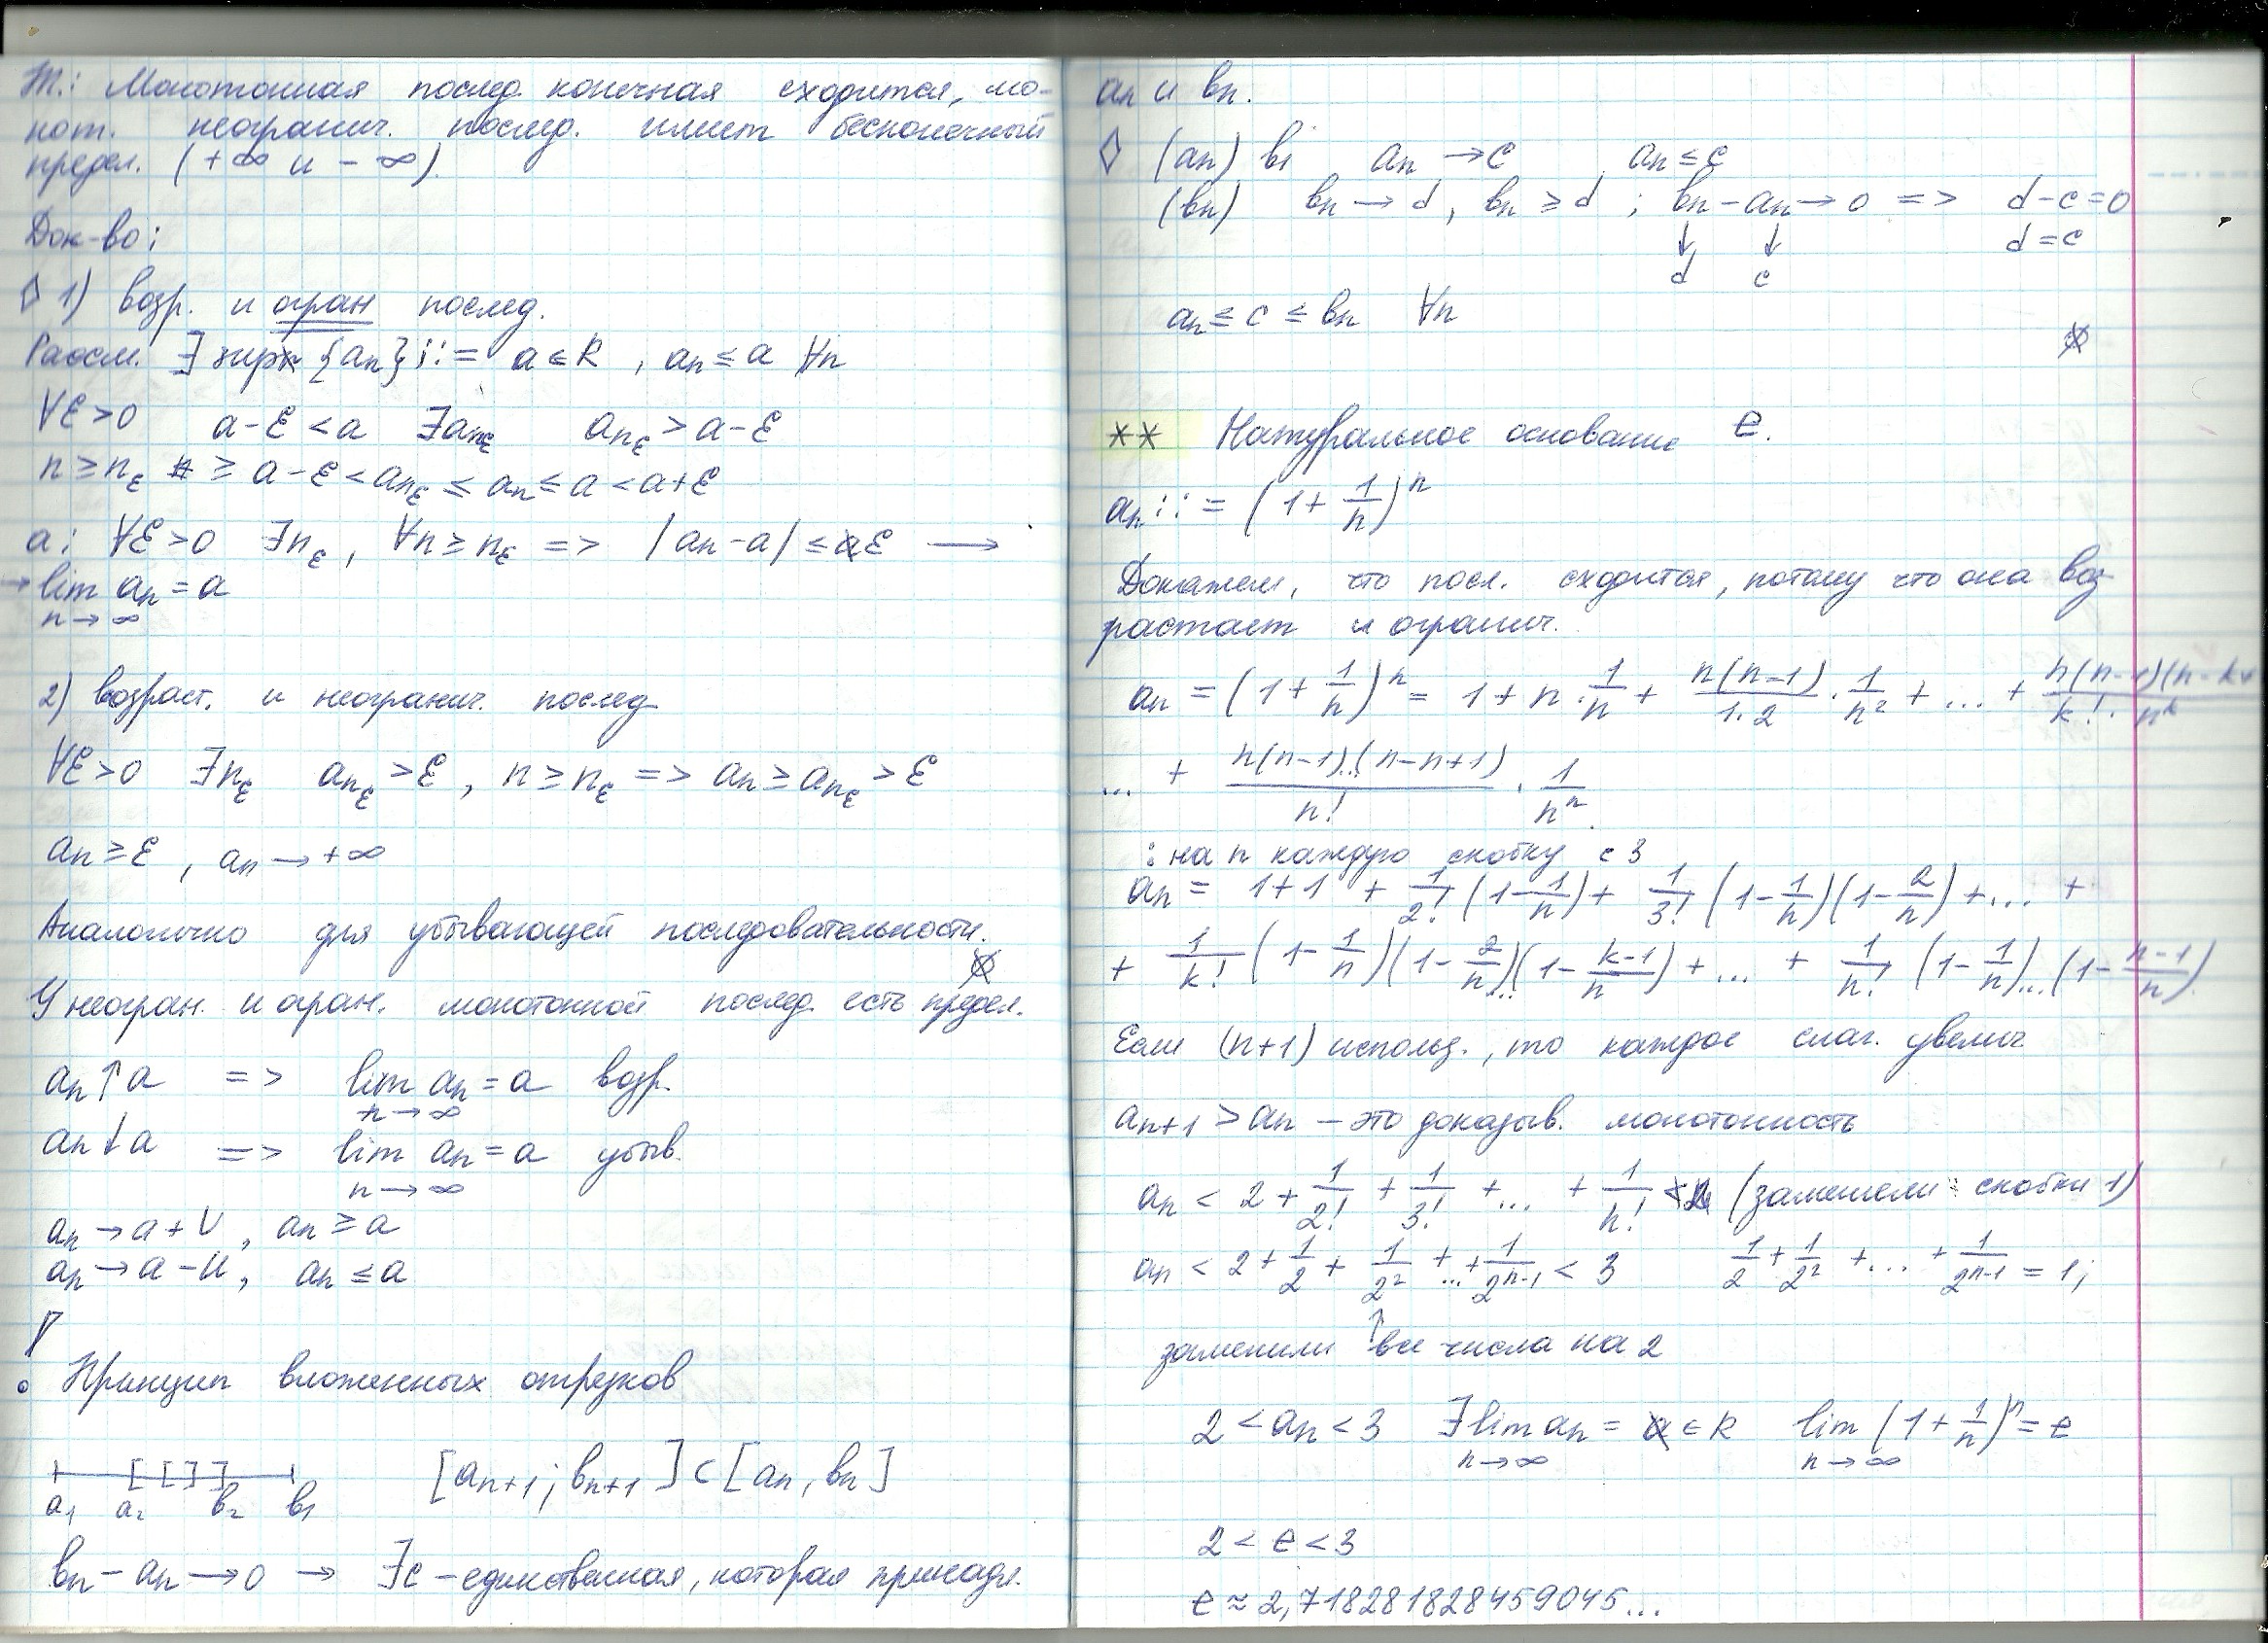 Т.: Монотонная послед. конечная сходится, мо-
нот. неогранич. послед. имеет бесконечный
предел. (+∞ и -∞).
Док-во:
◊ 1) возр. и огран послед.
Рассм. ∃ sup {an} := a ∈ R , an ≤ a ∀n
∀ε>0 a-ε < a ∃anε anε > a-ε
n ≥ nε ≥ a-ε < anε ≤ an ≤ a < a+ε
a: ∀ε>0 ∃nε, ∀n ≥ nε => |an-a| ≤ ε →
→ lim an = a
n→∞
2) возраст. и неогранич. послед.
∀ε>0 ∃nε anε > ε , n ≥ nε => an ≥ anε > ε
an ≥ ε , an → +∞
Аналогично для убывающей последовательности.
У неогран. и огран. монотонной послед. есть предел.
an ↑ a => lim an = a возр.
n→∞
an ↓ a => lim an = a убыв.
n→∞
an → a + U , an ≥ a
an → a - U , an ≤ a
Принцип вложенных отрезков
[ [ ] ] [an+1; bn+1] ⊂ [an, bn]
a1 a2 b2 b1
bn - an → 0 → ∃c - единственная, которая принадл.
an и bn.
◊ (an) b1 an → c an ≤ c
(bn) bn → d, bn ≥ d ; bn - an → 0 => d-c=0
↓ ↓ d=c
d c
an ≤ c ≤ bn ∀n
** Натуральное основание e.
an := (1 + 1/n)^n
Докажем, что посл. сходится, потому что она воз-
растает и огранич.
an = (1 + 1/n)^n = 1 + n · 1/n + n(n-1)/1·2 · 1/n² + ... + n(n-1)(n-k+/k! · n^k
... + n(n-1)...(n-n+1)/n! · 1/n^n
: на n каждую скобку с 3
an = 1+1 + 1/2! (1-1/n) + 1/3! (1-1/n)(1-2/n) + ... +
+ 1/k! (1-1/n)(1-2/n)...(1-k-1/n) + ... + 1/n! (1-1/n)...(1-n-1/n).
Если (n+1) использ., то каждое слаг. увелич.
an+1 > an - это доказыв. монотонность
an < 2 + 1/2! + 1/3! + ... + 1/n! (заменили скобки 1)
an < 2 + 1/2 + 1/2² + ... + 1/2^n-1 < 3 1/2 + 1/2² + ... + 1/2^n-1 = 1;
заменили ↑ все числа на 2
2 < an < 3 ∃ lim an = ∈ R lim (1 + 1/n)^n = e
n→∞ n→∞
2 < e < 3
e ≈ 2,718281828459045...